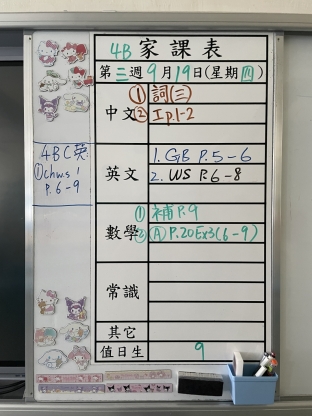 4B 家課表
第三週9月19日(星期四)
中文 ① 詞(三)
② I p.1-2
4BC英
① Ch ws 1
P. 6-9
英文 1. GB P.5-6
2. WS P.6-8
數學 ① 補 P.9
② Ⓐ P.20 Ex3(6-9)
常識
其它
值日生 9